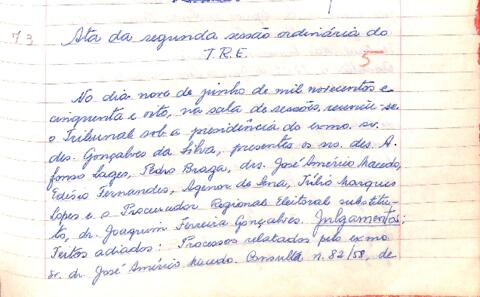 73
Ata da segunda sessão ordinária do
T.R.E.
5
No dia nove de junho de mil novecentos e
cinquenta e oito, na sala de sessões, reuniu-se
o Tribunal sob a presidência do exmo. sr.
des. Gonçalves da Silva, presentes os srs. des. A-
fonso Lages, Pedro Braga, drs. José Américo Macedo,
Edésio Fernandes, Agenor de Sena, Túlio Marques
Lopes e o Procurador Regional Eleitoral substitu-
to, dr. Joaquim Ferreira Gonçalves. Julgamentos:
Feitos adiados: Processos relatados pelo exmo
sr. dr. José Américo Macedo. Consulta n. 82/58, de